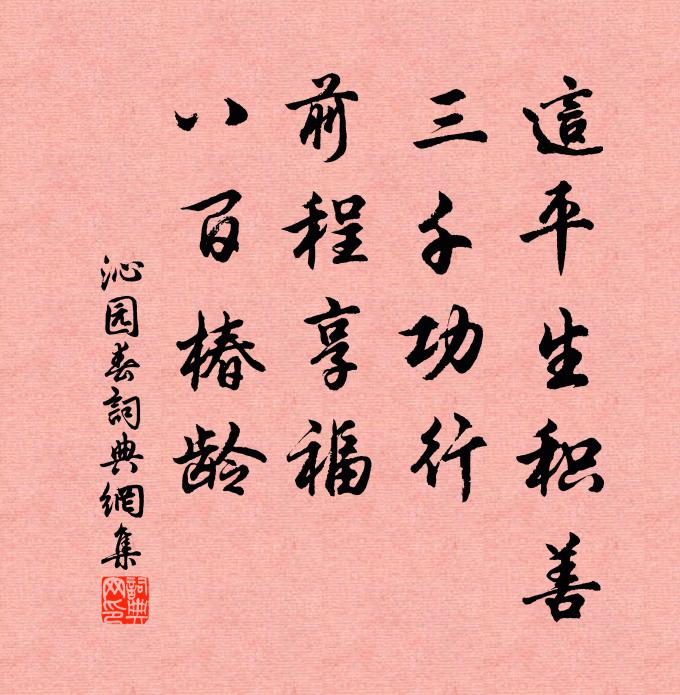 這平生积善
三千功行
前程享福
八百椿龄
沁园春詞典網集
詞典
网印